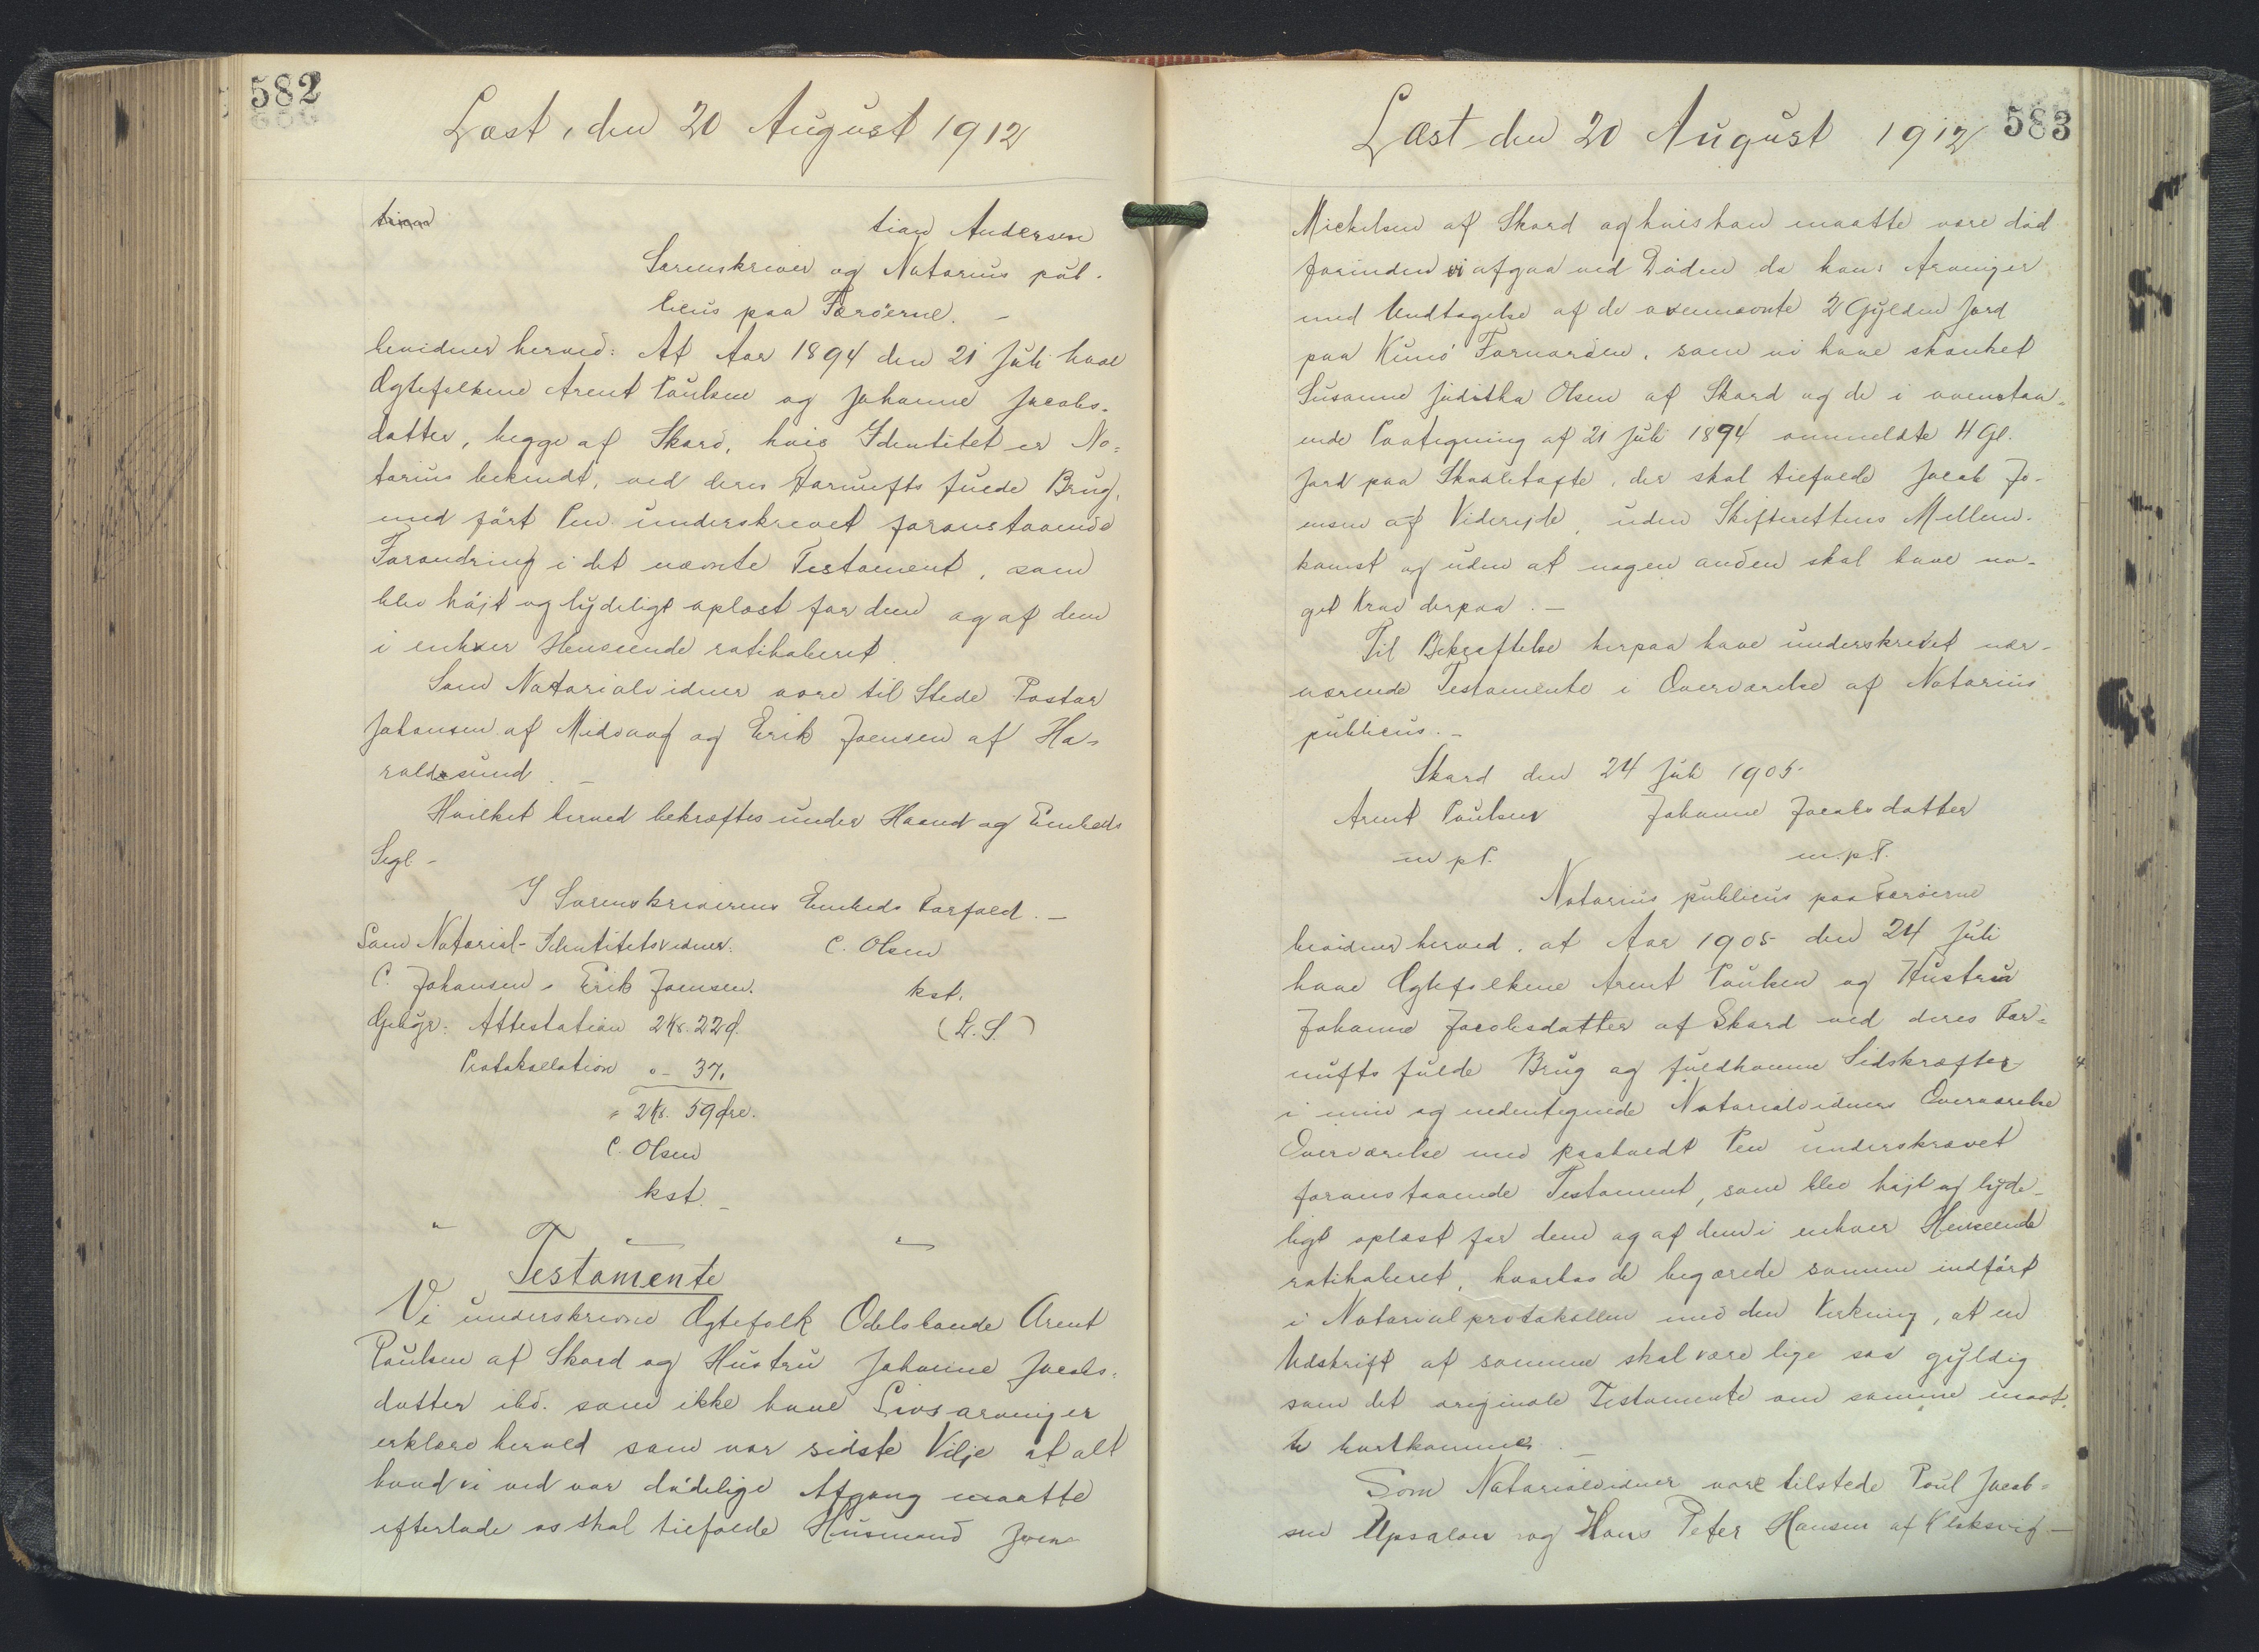 582
Læst, den 20 August 1912
tian Andersen
Sorenskriver og Notarius pub-
licus paa Færöerne. -
bevidner herved: At Aar 1894 den 21 Juli have
Ægtefolkene Arent Poulsen og Johanne Jacobs-
datter, begge af Skard, hvis Identitet er No-
tarius bekendt, ved deres Fornufts fulde Brug,
med fört Pen underskrevet foranstaaende
Forandring i det nævnte Testament, som
blev höjt og lydeligt oplæst for dem og af dem
i enhver Henseende ratihaberet.
Som Notorialvidner vare til Stede Pastor
Johansen af Midvaag og Erik Joensen af Ha-
raldssund. -
Hvilket herved bekræftes under Haand og Embeds
Segl -
I Sorenskriverens Embeds Forfald. -
Som Notarial-Identitetsvidner. C. Olsen
C. Johansen, Erik Joensen. kst.
Gebyr: Attestation 2 Kr. 22 Ø. (L.S.)
Protokollation "- 37.
" 2 Kr. 59 Øre.
C. Olsen
kst. -
Testamente
Vi underskrevne Ægtefolk Odelsbonde Arent
Poulsen af Skard og Hustru Johanne Jacobs-
datter ibd. som ikke have Livsarvinger
erklære herved som vor sidste Vilje at alt
hvad vi ved vor dödelige Afgang maatte
efterlade os skal tilfalde Husmand Joen
583
Læst den 20 August 1912
Mickelsen af Skard og hvis han maatte være död
forinden vi afgaa ved Döden da hans Arvinger
med Undtagelse af de ovennævnte 2 Gylden Jord
paa Kunö Fornorden, som vi have skænket
Susanne Juditha Olsen af Skard og de i ovenstaa-
ende Paategning af 21 Juli 1894 ommeldte 4 Gl.
Jord paa Skaaletofte, der skal tilfalde Jacob Jo-
ensen af Videreide, uden Skifterettens Mellem-
komst og uden at nogen anden skal have no-
get Krav derpaa. -
Til Bekræftelse herpaa have underskrevet nær-
værende Testamente i Overværelse af Notarius
publicus. -
Skard den 24 Juli 1905
Arent Poulsen Johanne Jacobsdatter
m. p. P. m. p. P.
Notarius publicus paa Færöerne
bevidner herved, at Aar 1905 den 24 Juli
have Ægtefolkene Arent Poulsen og Hustru
Johanne Jacobsdatter af Skard ved deres For-
nufts fulde Brug og fuldkomne Sidskræfter
i min og nedentegnede Notarialvidners Overværelse
Overværelse med paaholdt Pen underskrevet
foranstaaende Testament, som blev höjt og lyde-
ligt oplæst for dem og af dem i enhver Henseende
ratihaberet, hvorhos de begærede samme indfört
i Notarialprotokollen med den Virkning, at en
Udskrift af samme skal være lige saa gyldig
som det originale Testamente om samme maat-
te bortkomme. -
Som Notarialvidner vare tilstede Poul Jacob-
sen Upsalon og Hans Peter Hansen af Klaksvig -